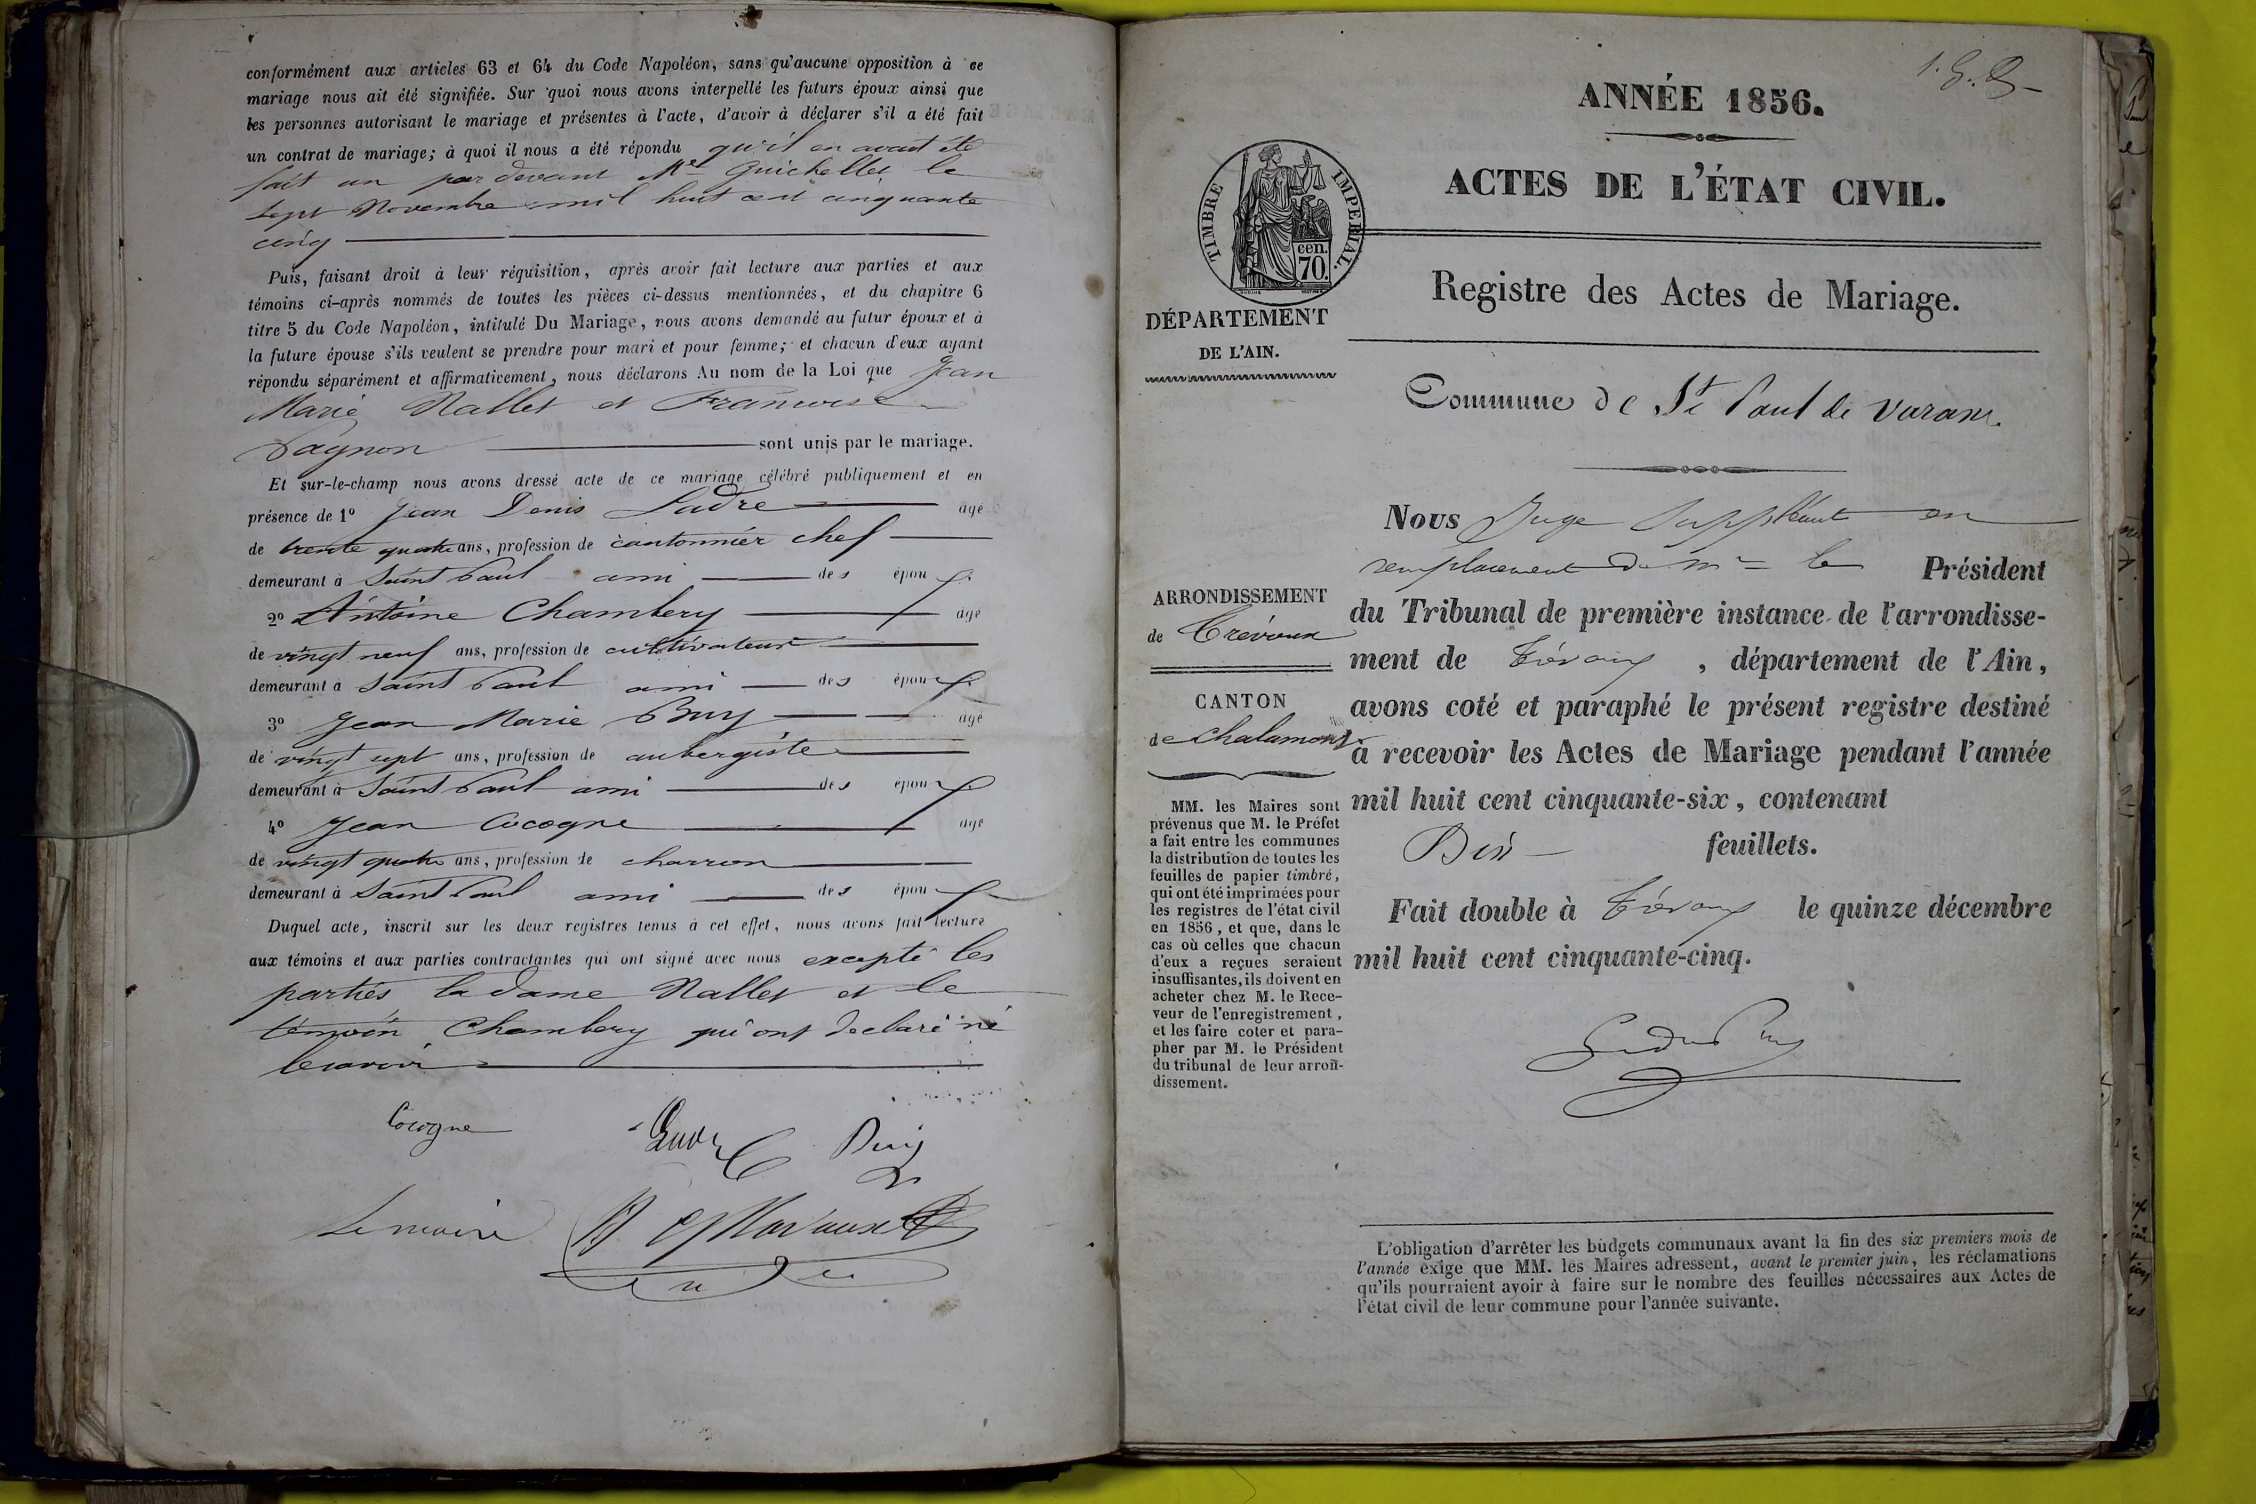 conformément aux articles 63 et 64 du Code Napoléon, sans qu'aucune opposition à ce
mariage nous ait été signifiée. Sur quoi nous avons interpellé les futurs époux ainsi que
les personnes autorisant le mariage et présentes à l'acte, d'avoir à déclarer s'il a été fait
un contrat de mariage; à quoi il nous a été répondu qu'il en avait été
fait un par devant Me Guichellet le
sept Novembre mil huit cent cinquante
cinq
Puis, faisant droit à leur réquisition, après avoir fait lecture aux parties et aux
témoins ci-après nommés de toutes les pièces ci-dessus mentionnées, et du chapitre 6
titre 5 du Code Napoléon, intitulé Du Mariage, nous avons demandé au futur époux et à
la future épouse s'ils veulent se prendre pour mari et pour femme; et chacun d'eux ayant
répondu séparément et affirmativement, nous déclarons Au nom de la Loi que Jean
Marie Nallet et Francoise
Pagnon sont unis par le mariage.
Et sur-le-champ nous avons dressé acte de ce mariage célébré publiquement et en
présence de 1º Jean Denis Ladre âgé
de trente quatre ans, profession de cantonnier chef
demeurant à Saint Paul ami des époux
2º Antoine Chambery âgé
de vingt neuf ans, profession de cultivateur
demeurant à Saint Paul ami des époux
3º Jean Marie Buy âgé
de vingt sept ans, profession de aubergiste
demeurant à Saint Paul ami des époux
4º Jean Cocogne âgé
de vingt quatre ans, profession de charron
demeurant à Saint Paul ami des époux
Duquel acte, inscrit sur les deux registres tenus à cet effet, nous avons fait lecture
aux témoins et aux parties contractantes qui ont signé avec nous excepté les
parties la dame Nallet et le
témoin Chambery qui ont declaré ne
le savoir
Cocogne
Buy
Le maire
ANNÉE 1856.
ACTES DE L'ÉTAT CIVIL.
TIMBRE IMPERIAL.
cen.
70.
Registre des Actes de Mariage.
DÉPARTEMENT
DE L'AIN.
Commune de St Paul de Varax
Nous Juge Suppléant en
remplacement de Mr le Président
du Tribunal de première instance de l'arrondisse-
ment de Trévoux, département de l'Ain,
avons coté et paraphé le présent registre destiné
à recevoir les Actes de Mariage pendant l'année
mil huit cent cinquante-six, contenant
Dix feuillets.
Fait double à Trévoux le quinze décembre
mil huit cent cinquante-cinq.
ARRONDISSEMENT
de Trévoux
CANTON
de Chalamont
MM. les Maires sont
prévenus que M. le Préfet
a fait entre les communes
la distribution de toutes les
feuilles de papier timbré,
qui ont été imprimées pour
les registres de l'état civil
en 1856, et que, dans le
cas où celles que chacun
d'eux a reçues seraient
insuffisantes, ils doivent en
acheter chez M. le Rece-
veur de l'enregistrement,
et les faire coter et para-
pher par M. le Président
du tribunal de leur arron-
dissement.
L'obligation d'arrêter les budgets communaux avant la fin des six premiers mois de
l'année exige que MM. les Maires adressent, avant le premier juin, les réclamations
qu'ils pourraient avoir à faire sur le nombre des feuilles nécessaires aux Actes de
l'état civil de leur commune pour l'année suivante.